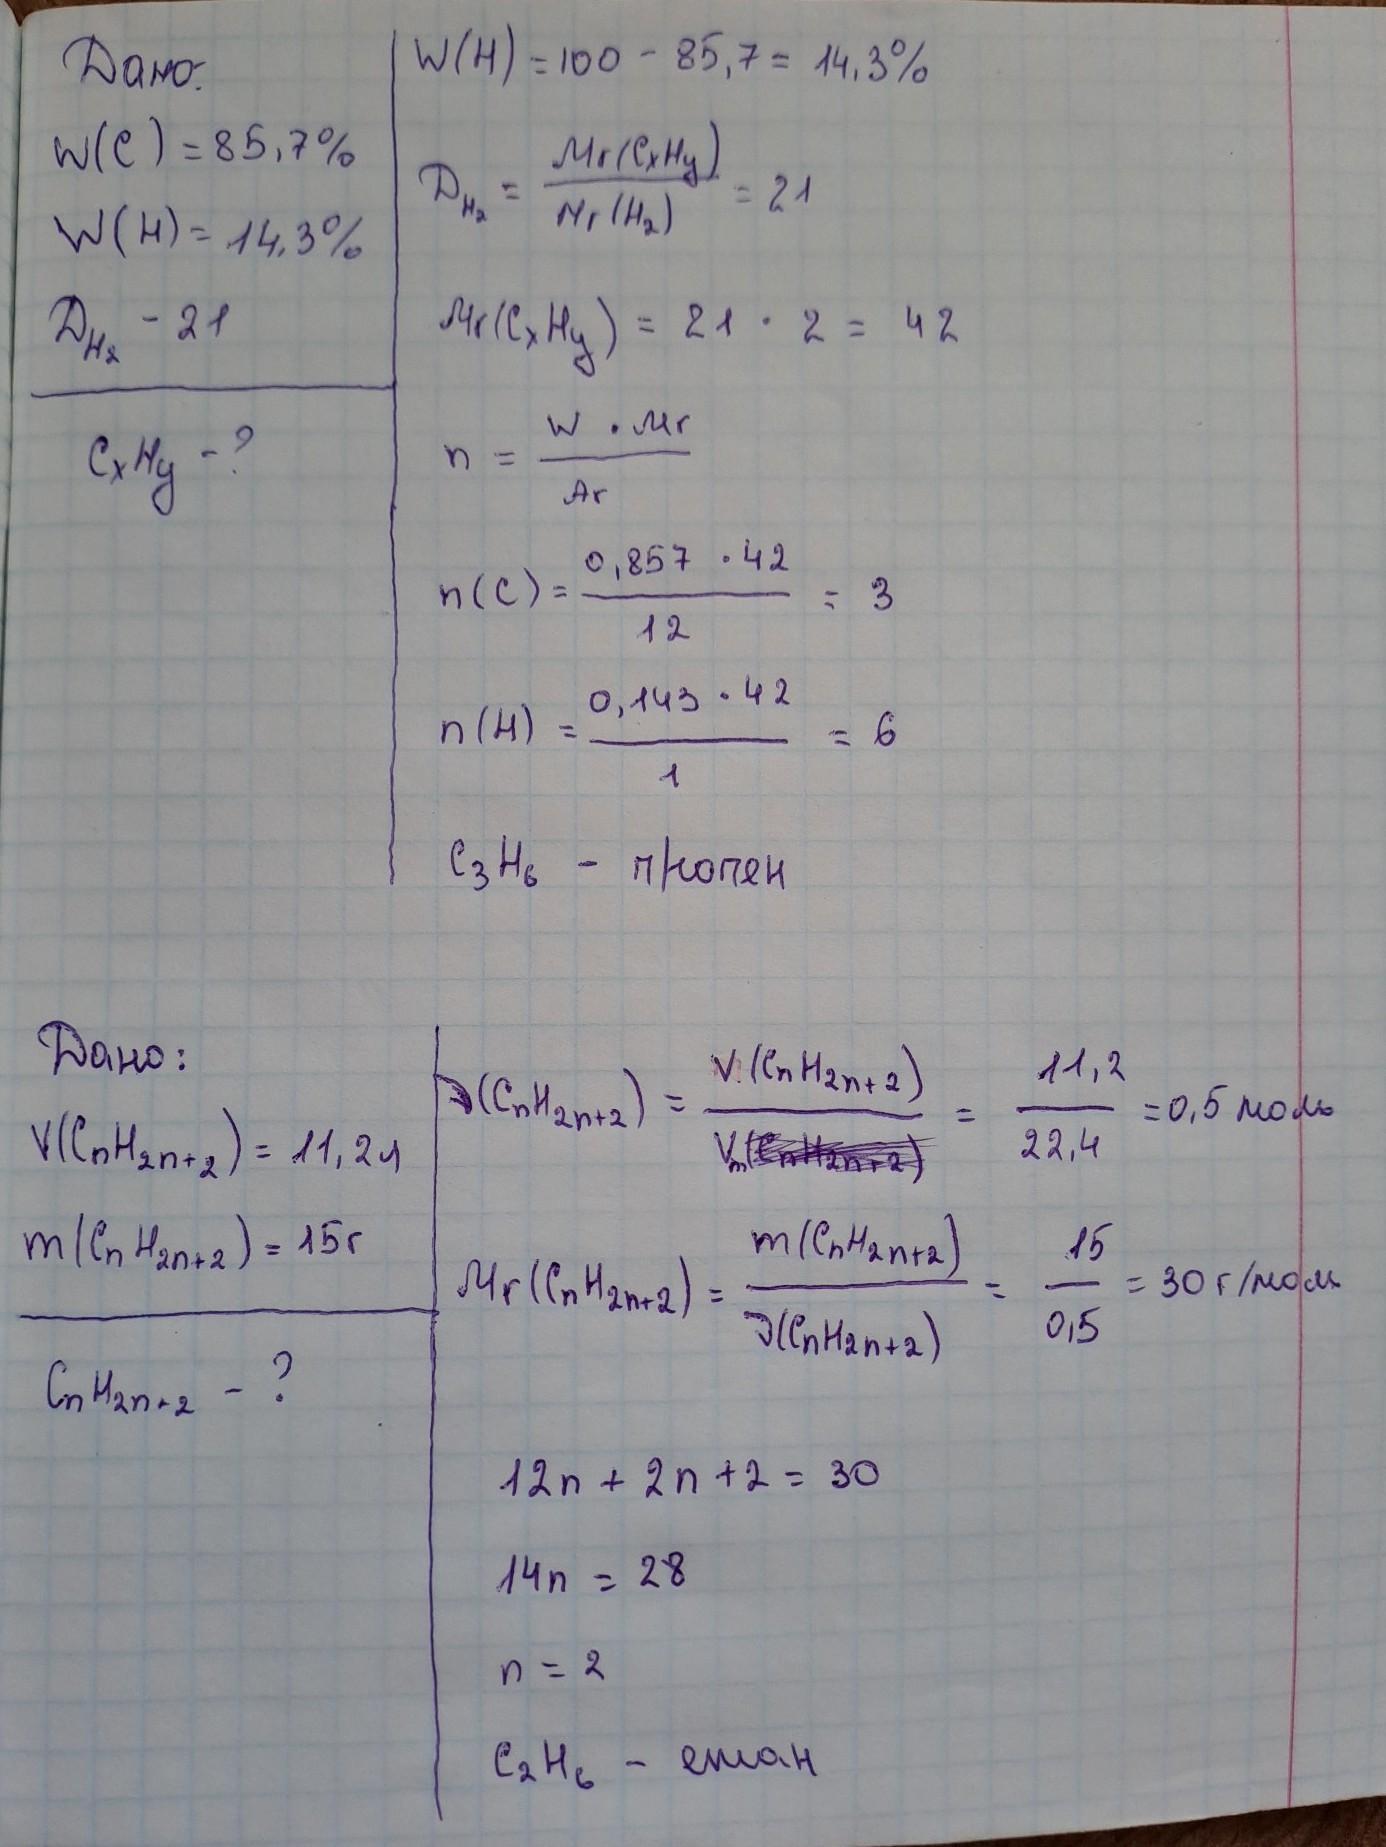 Дано:
W(C) = 85,7%
W(H) = 14,3%
D_H₂ - 21
CₓHᵧ - ?
W(H) = 100 - 85,7 = 14,3%
D_H₂ = Mr(CₓHᵧ) / Mr(H₂) = 21
Mr(CₓHᵧ) = 21 · 2 = 42
n = W · Mr / Ar
n(C) = 0,857 · 42 / 12 = 3
n(H) = 0,143 · 42 / 1 = 6
C₃H₆ - пропен
Дано:
V(CₙH₂ₙ₊₂) = 11,2л
m(CₙH₂ₙ₊₂) = 15г
CₙH₂ₙ₊₂ - ?
ν(CₙH₂ₙ₊₂) = V(CₙH₂ₙ₊₂) / Vₘ = 11,2 / 22,4 = 0,5 моль
Mr(CₙH₂ₙ₊₂) = m(CₙH₂ₙ₊₂) / ν(CₙH₂ₙ₊₂) = 15 / 0,5 = 30 г/моль
12n + 2n + 2 = 30
14n = 28
n = 2
C₂H₆ - етан